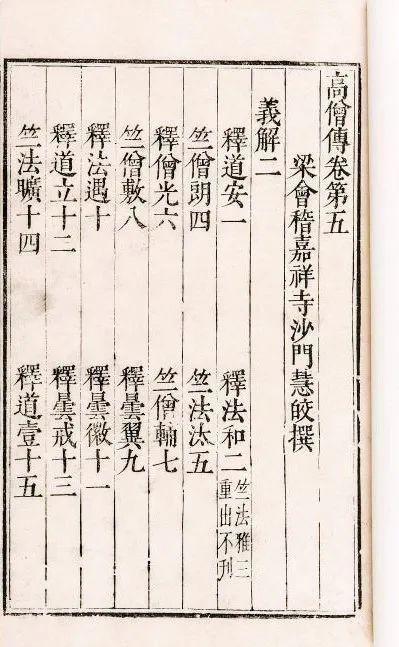 高僧傳卷第五
梁會稽嘉祥寺沙門慧皎撰
義解二
釋道安一　釋法和二　竺法雅三重出不刋
竺僧朗四　竺法汰五
釋僧光六　竺僧輔七
竺僧敷八　釋曇翼九
釋法遇十　釋曇徽十一
釋道立十二　釋曇戒十三
竺法曠十四　釋道壹十五